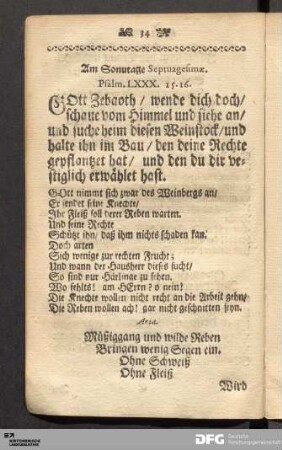 34
Am Sonntagte Septuagesimæ.
Psalm. LXXX. 15.16.
GOtt Zebaoth / wende dich doch /
schaue vom Himmel und siehe an /
und suche heim diesen Weinstock / und
halte ihn im Bau / den deine Rechte
gepflantzet hat / und den du dir ve-
stiglich erwählet hast.
GOtt nimmt sich zwar des Weinbergs an /
Er sendet seine Knechte /
Ihr Fleiß soll derer Reben warten.
Und seine Rechte
Schützt ihn / daß ihm nichts schaden kan.
Doch arten
Sich wenige zur rechten Frucht;
Und wann der Hausherr dieses sucht /
So sind nur Härlinge zu sehen.
Wo fehlts! am HErrn? o nein!
Die Knechte wollen nicht recht an die Arbeit gehn /
Die Reben wollen ach! gar nicht geschnitten seyn.
Aria.
Müßiggang und wilde Reben
Bringen wenig Segen ein.
Ohne Schweiß
Ohne Fleiß
Wird
DFG Deutsche
Forschungsgemeinschaft